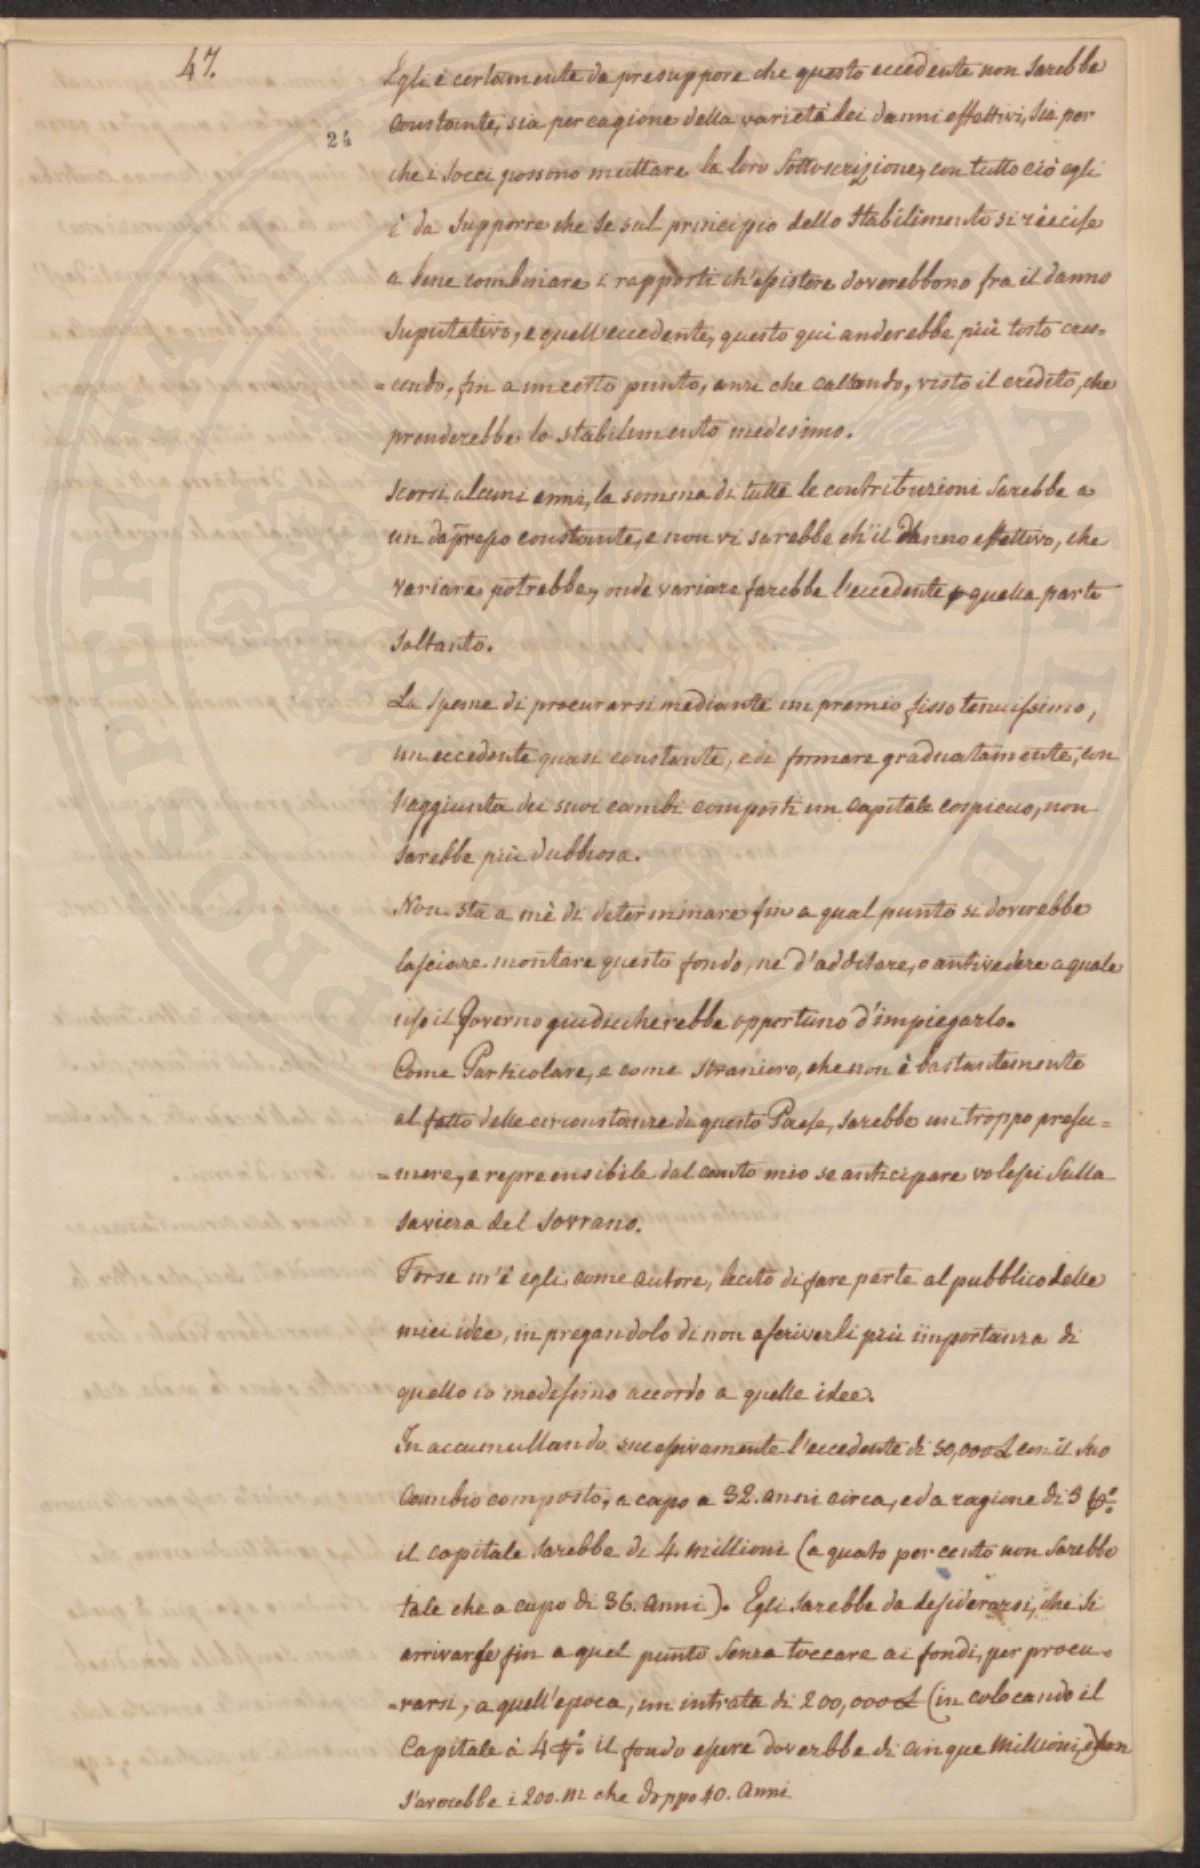 47.
24
Egli è certamente da presuppore che questo eccedente non sarebbe
constante, sia per cagione della varietà dei danni effettivi, sia per
che i socci possono muttare la loro sottoscrizione, con tutto ciò egli
è da supporre che se sul principio dello stabilimento si riecisse
a bene combinare i rapporti ch'esistere doverebbono fra il danno
suputativo, e quell'eccedente, questo qui anderebbe più tosto cres-
=cendo, fin a un certo punto, anzi che callando, visto il credito, che
prenderebbe lo stabilimento medesimo.
Scorsi alcuni anni, la somma di tutte le contribuzioni sarebbe a
un dapresso constante, e non vi sarebbe ch'il danno effettivo, che
variare potrebbe, onde variare farebbe l'eccedente p quella parte
soltanto.
La speme di procurarsi mediante un premio fisso tenuissimo,
un eccedente quasi constante, e di formare graduatamente, con
l'aggiunta dei suoi cambi composti un capitale cospicuo, non
sarebbe più dubbiosa.
Non sta a mè di determinare fin a qual punto si doverebbe
lasciare montare questo fondo, ne d'additare, o antivedere a quale
uso il Governo giudicherebbe opportuno d'impiegarlo.
Come Particolare, e come straniero, che non è bastantemente
al fatto delle circonstanze di questo Paese, sarebbe un troppo presu=
=mere, e reprensibile dal canto mio se anticipare volessi sulla
saviezza del Sovrano.
Forse m'è egli, come autore, lecito di fare parte al pubblico delle
miei idee, in pregandolo di non ascriverli più importanza di
quello io medesimo accordo a quelle idee.
In accumullando successivamente l'eccedente di 50,000 con il suo
cambio composto, a capo a 32. anni circa, ed a ragione di 5
il capitale sarebbe di 4 millioni (a quatro per cento non sarebbe
tale che a capo di 36. anni). Egli sarebbe da desiderarsi, che si
arrivasse fin a quel punto senza toccare ai fondi, per procu-
=rarsi, a quell'epoca, un intrata di 200,000 (in colocando il
Capitale à 4 il fondo essere doverebbe di cinque millioni,
s'averebbe i 200.m che doppo 40. anni